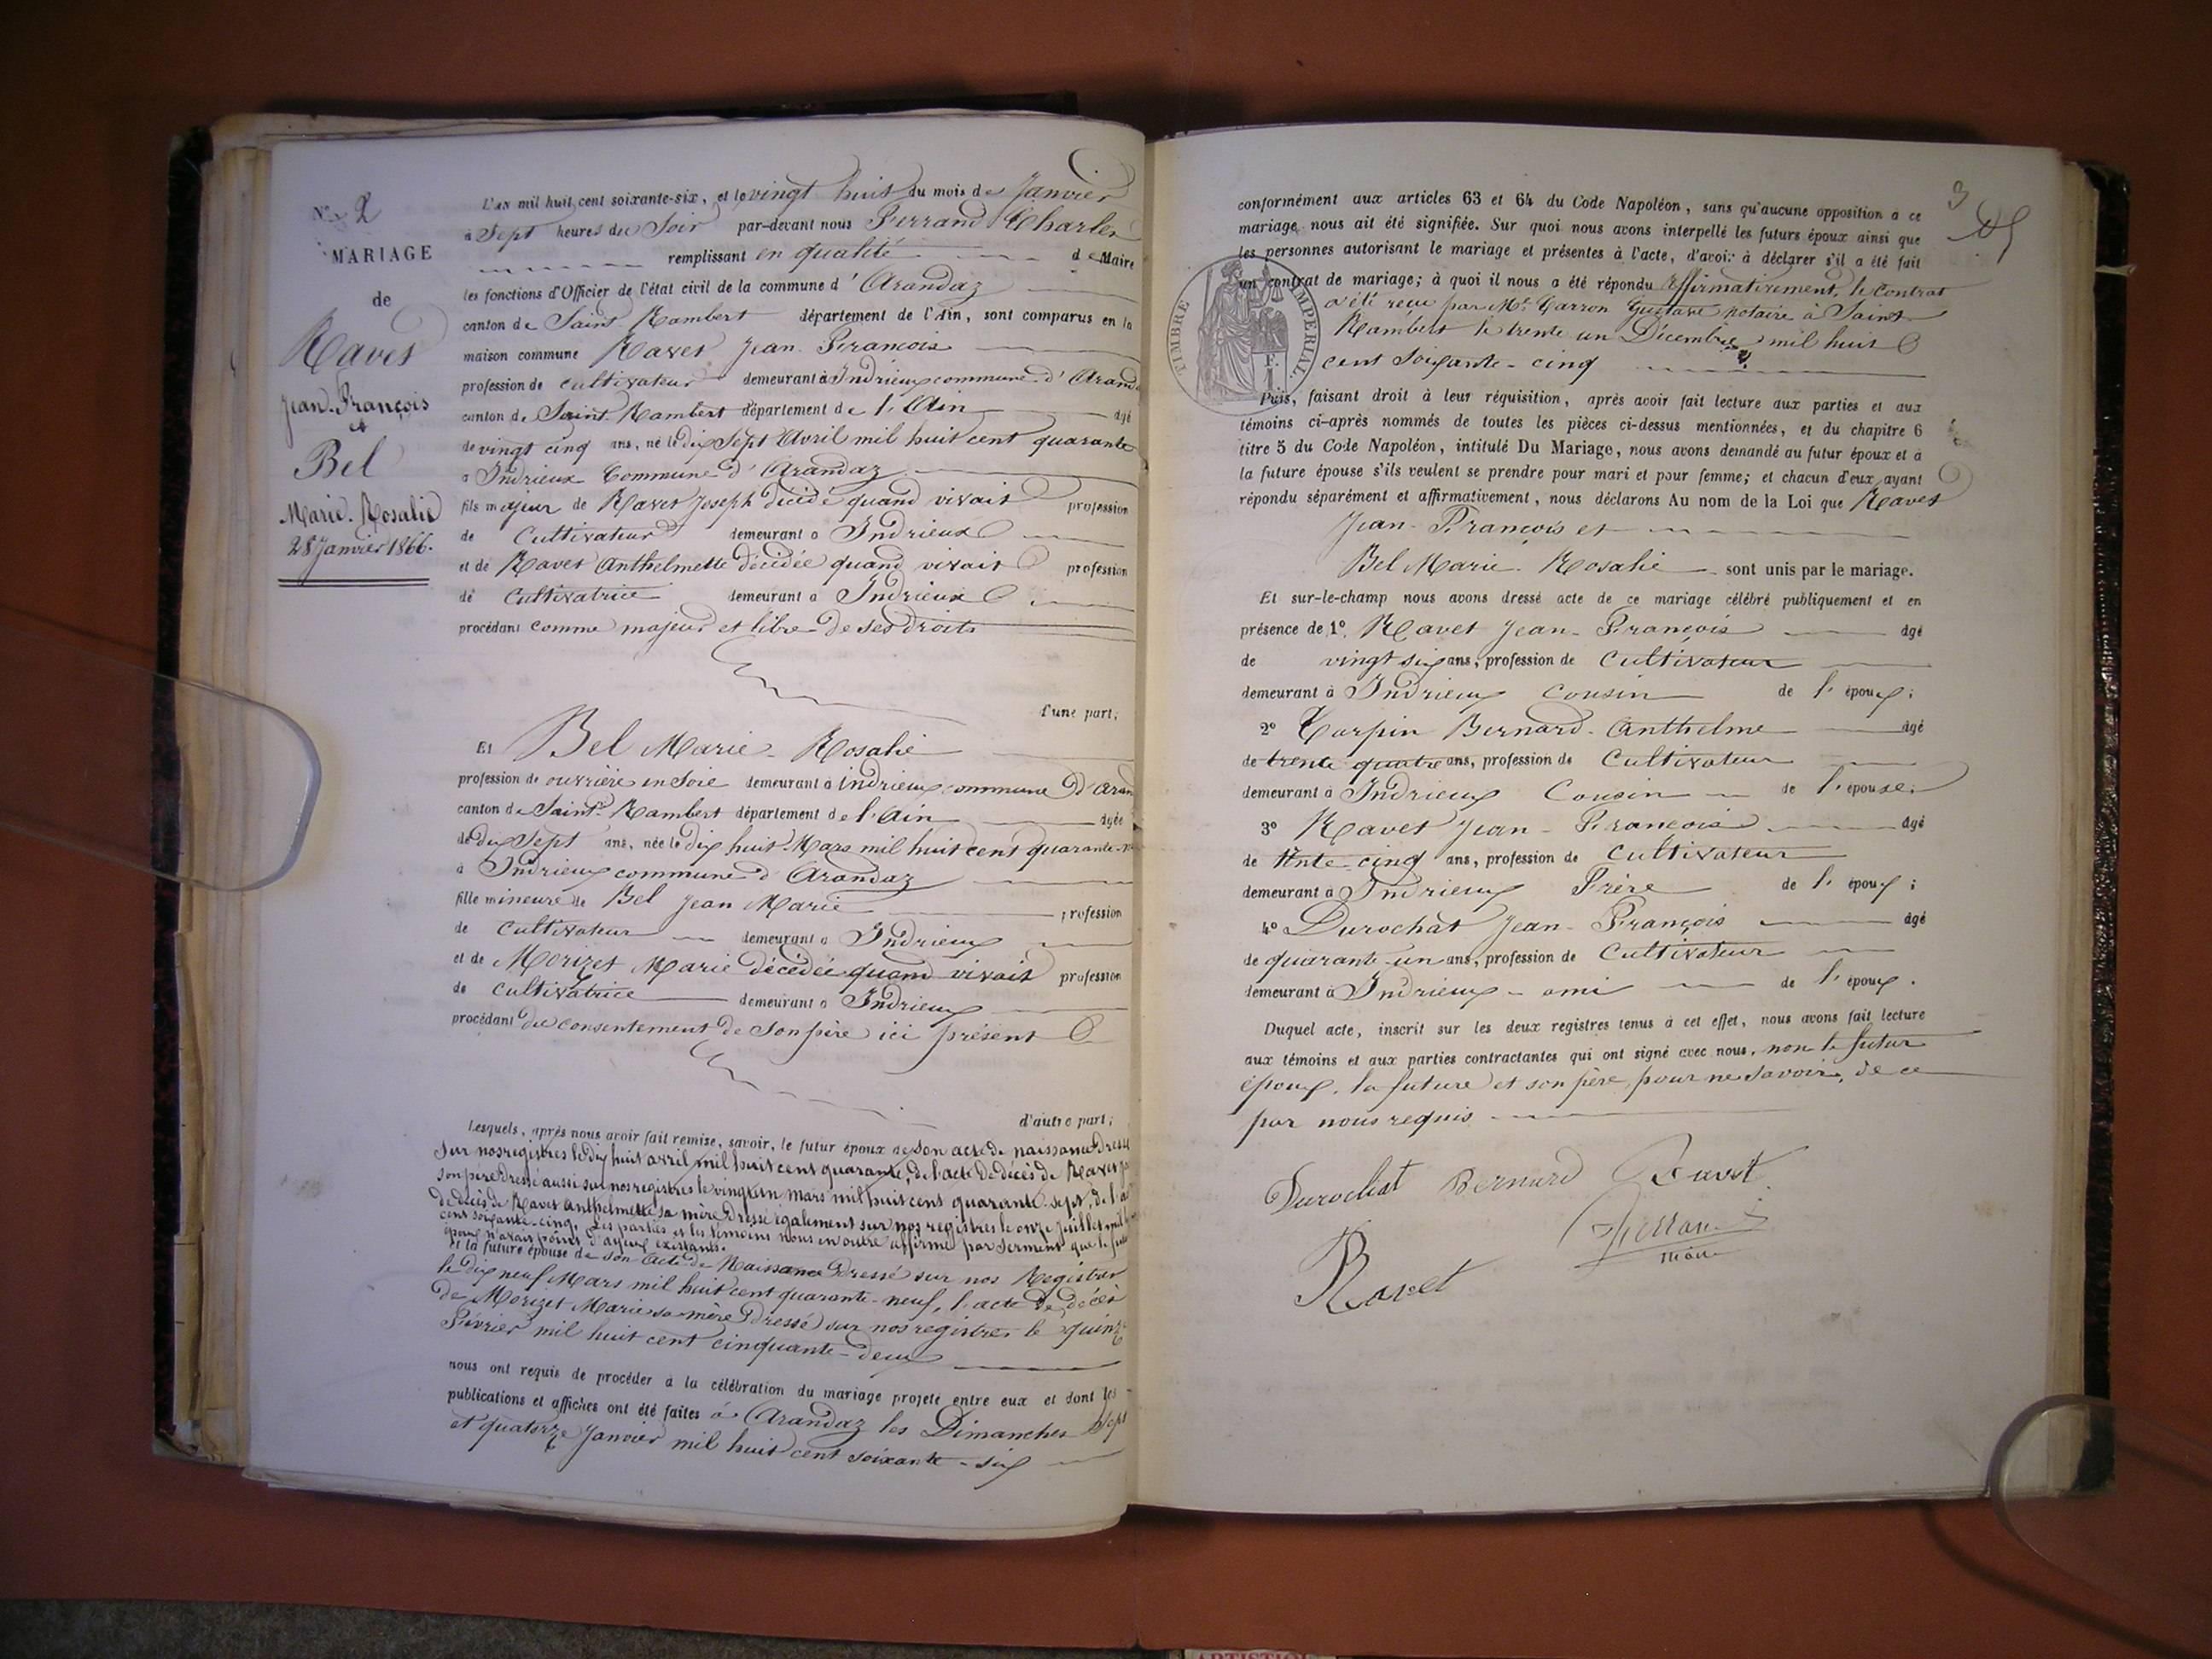 N° 2
MARIAGE
de
Ravet
Jean-François
et
Bel
Marie-Rosalie
28 Janvier 1866.
L'an mil huit cent soixante-six, et le vingt huit du mois de Janvier
à Sept heures du Soir par-devant nous Ferrand Charles
remplissant en qualité de Maire
les fonctions d'Officier de l'état civil de la commune d'Arandaz
canton de Saint-Rambert département de l'Ain, sont comparus en la
maison commune Ravet Jean-François
profession de cultivateur demeurant à Indrieux commune d'Arand
canton de Saint-Rambert département de l'Ain âgé
de vingt cinq ans, né le dix Sept Avril mil huit cent quarante
à Indrieux Commune d'Arandaz
fils majeur de Ravet Joseph décédé quand vivait profession
de Cultivateur demeurant à Indrieux
et de Ravet Anthelmette décédée quand vivait profession
de Cultivatrice demeurant à Indrieux
procédant comme majeur et libre de ses droits
d'une part;
Et Bel Marie-Rosalie
profession de ouvrière en Soie demeurant à indrieux commune d'Aran
canton de Saint-Rambert département de l'Ain âgée
de dix Sept ans, née le dix huit Mars mil huit cent quarante-n
à Indrieux commune d'Arandaz
fille mineure de Bel Jean Marie profession
de cultivateur demeurant à Indrieux
et de Morizet Marie décédée quand vivait profession
de cultivatrice demeurant à Indrieux
procédant du consentement de Son père ici présent
d'autre part;
Lesquels, après nous avoir fait remise, savoir, le futur époux de son acte de naissance dressé
Sur nos registres le dix huit avril mil huit cent quarante, de l'acte de décès de Ravet
son père dressé aussi sur nos registres le vingt un mars mil huit cent quarante-sept, de l'
de décès de Ravet Anthelmette sa mère dressé également sur nos registres le onze juillet mil
cent soixante-cinq. Les parties et les témoins nous en outre affirmé par serment que le
époux n'avait point d'ayeux existants.
et la future épouse de son Acte de Naissance dressé sur nos Registres
le dix neuf Mars mil huit cent quarante-neuf, l'acte de décès
de Morizet Marie sa mère dressé sur nos registres le quinze
Février mil huit cent cinquante-deux
nous ont requis de procéder à la célébration du mariage projeté entre eux et dont les
publications et affiches ont été faites à Arandaz les Dimanches Sept
et quatorze Janvier mil huit cent soixante-six
3
conformément aux articles 63 et 64 du Code Napoléon, sans qu'aucune opposition à ce
mariage nous ait été signifiée. Sur quoi nous avons interpellé les futurs époux ainsi que
les personnes autorisant le mariage et présentes à l'acte, d'avoir à déclarer s'il a été fait
un contrat de mariage; à quoi il nous a été répondu affirmativement, le contrat
a été reçu par Me Garron Gustave notaire à Saint-
Rambert le trente un Décembre mil huit
cent soixante-cinq
TIMBRE IMPERIAL
F.
1
Puis, faisant droit à leur réquisition, après avoir fait lecture aux parties et aux
témoins ci-après nommés de toutes les pièces ci-dessus mentionnées, et du chapitre 6
titre 5 du Code Napoléon, intitulé Du Mariage, nous avons demandé au futur époux et à
la future épouse s'ils veulent se prendre pour mari et pour femme; et chacun d'eux ayant
répondu séparément et affirmativement, nous déclarons Au nom de la Loi que Ravet
Jean-François et
Bel Marie-Rosalie sont unis par le mariage.
Et sur-le-champ nous avons dressé acte de ce mariage célébré publiquement et en
présence de 1° Ravet Jean-François âgé
de vingt six ans, profession de Cultivateur
demeurant à Indrieux cousin de l'époux;
2° Carpin Bernard-Anthelme âgé
de trente quatre ans, profession de Cultivateur
demeurant à Indrieux Cousin de l'épouse;
3° Ravet Jean-François âgé
de trente-cinq ans, profession de Cultivateur
demeurant à Indrieux Frère de l'époux;
4° Durochat Jean-François âgé
de quarante-un ans, profession de Cultivateur
demeurant à Indrieux - ami de l'époux.
Duquel acte, inscrit sur les deux registres tenus à cet effet, nous avons fait lecture
aux témoins et aux parties contractantes qui ont signé avec nous, non le futur
époux, la future et son père, pour ne savoir, de ce
par nous requis
Durochat Bernard Ravet
Ferrand
maire
Ravet